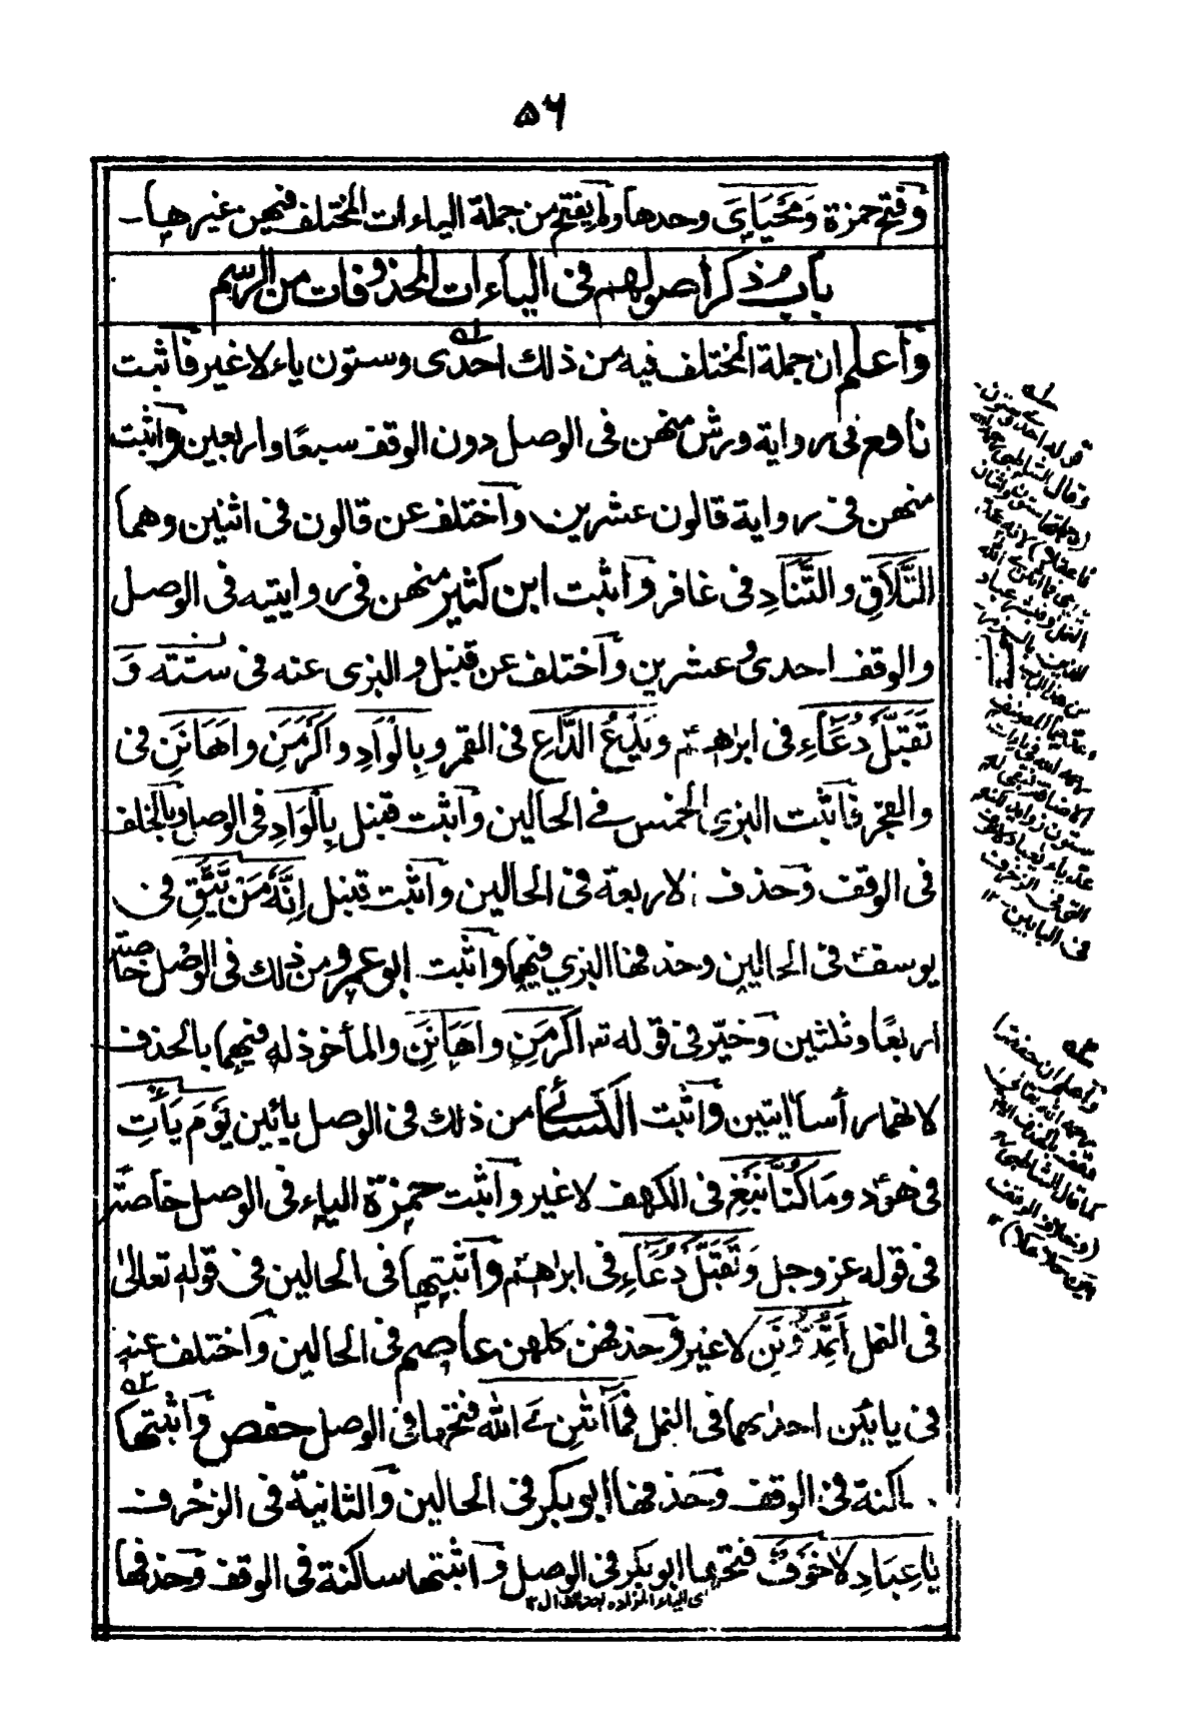 ٥٦
وفتح حمزة وَمَحْيَايَ وحدها ولم يفتح من جملة الياءات المختلف فيهن غيرها
باب ذكر أصولهم فى الياءات المحذوفات من الرسم
وأعلم ان جملة المختلف فيه من ذلك احدى وستون ياء لا غير فأثبت
نافع فى رواية ورش منهن فى الوصل دون الوقف سبعًا واربعين وأثبت
منهن فى رواية قالون عشرين وأختلف عن قالون فى اثنين وهما
التَّلَاقِ والتَّنَادِ فى غافر وأثبت ابن كثير منهن فى روايتيه فى الوصل
والوقف احدى وعشرين وأختلف عن قنبل والبزى عنه فى ستته وَ
تَقَبَّلْ دُعَاءِ فى ابراهيم ويَدْعُ الدَّاعِ فى القمر وبِالْوَادِ وأَكْرَمَنِ وأَهَانَنِ فى
والفجر فأثبت البزى الخمس فى الحالين وأثبت قنبل بِالْوَادِ فى الوصل وبالخلف
فى الوقف وحذف الاربعة فى الحالين وأثبت قنبل إِنَّهُ مَنْ يَّتَّقِ فى
يوسف فى الحالين وحذفها البزي فيهما وأثبت ابو عمرو من ذلك فى الوصل خاصّة
اربعًا وثلثين وخيّر فى قوله تعہ أَكْرَمَنِ وأَهَانَنِ والمأخوذ له فيهما بالحذف
لانهما رأسا ايتين وأثبت الكسائى من ذلك فى الوصل يائين يَوْمَ يَأْتِ
فى هود ومَا كُنَّا نَبْغِ فى الكهف لا غير وأثبت حمزة الياء فى الوصل خاصّة
فى قوله عز وجل وَتَقَبَّلْ دُعَاءِ فى ابراهيم وأثبتها فى الحالين فى قوله تعالى
فى النمل أَتُمِدُّوْنَنِ لا غير وحذفهن كلهن عاصم فى الحالين وأختلف عنه
فى يائين احدٰىهما فى النمل فَمَا اٰتٰنِ یَ الله فتحها فى الوصل حفص وأثبتها
ساكنة فى الوقف وحذفها ابو بكر فى الحالين والثانية فى الزخرف
يٰاعِبَادِ لَا خَوْفٌ فتحها ابو بكر فى الوصل وأثبتها ساكنة فى الوقف وحذفها
قوله احدى وستون
وقال الشاطبى